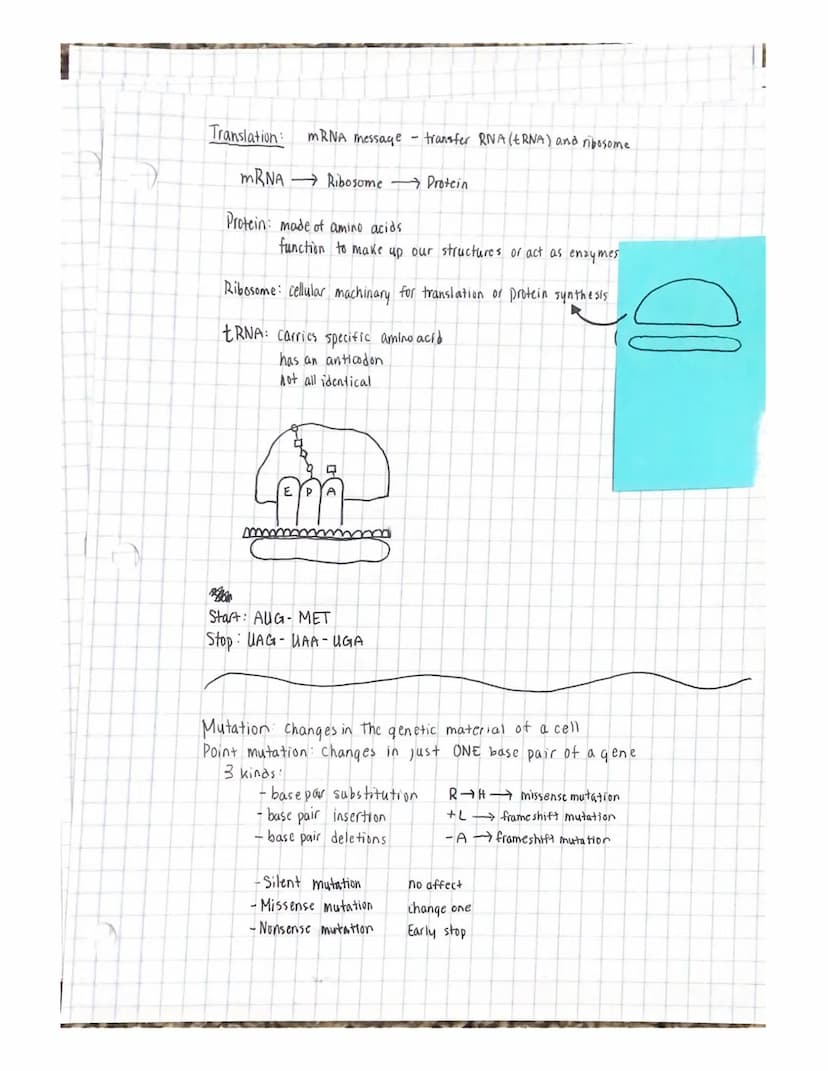 Translation: mRNA message - transfer RNA (tRNA) and ribosome
mRNA → Ribosome → Protein
Protein: made of amino acids
function to make up our structures or act as enzymes
Ribosome: cellular machinary for translation or protein synthesis
tRNA: carries specific amino acid
has an anticodon
not all identical
E P A
Start: AUG - MET
Stop: UAG - UAA - UGA
Mutation: Changes in The genetic material of a cell
Point mutation: Changes in just ONE base pair of a gene
3 kinds:
- base pair substitution R → H → missense mutation
- base pair insertion +L → frameshift mutation
- base pair deletions -A → frameshift mutation
- Silent mutation no affect
- Missense mutation change one
- Nonsense mutation Early stop